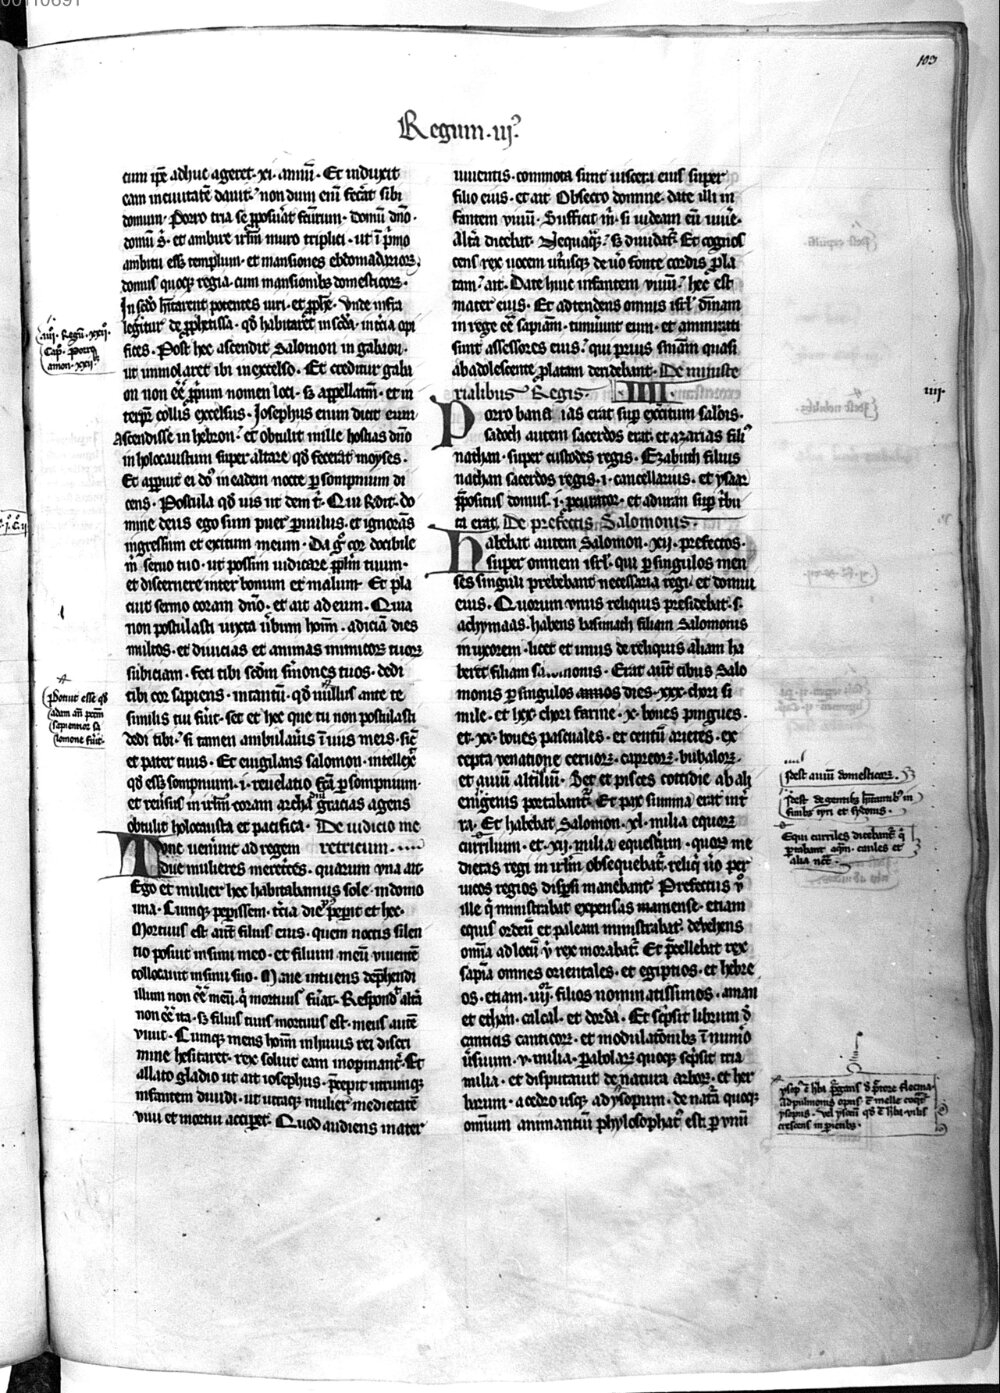 103
Regum .iijꝰ
cum ip̄e adhuc ageret .xi. annū. Et induxit
eam in ciuitatē dauit. non dum enī fec̄at sibi
domum. Porro tria se p̄posuāt factur̄. domū dn̄o.
domū s. et ambire ir̄lm muro triplici. ut ī p̄mo
ambitu ess; templum. et mansiones ebdomadarioꝝ.
domus quoqꝫ regia. cum mansionibꝫ domesticoꝝ.
In sc̄do h̄itarent potentes uiri. et ꝓphe. Vnde infra
legitur de ꝓphetissa. qd̄ habitaret in sc̄da. in t̄cia opi
fices. Post hec ascendit Salomon in gabaon.
ut immolaret ibi in excelso. Et creditur gaba
on non ēē ꝓprium nomen loci. s; appellatiū. et in
terp̄r collis excelsus. Iosephus enim dicit eum
ascendisse in hebron. et obtulit mille hostias dn̄o
in holocaustum super altare qd̄ fecerat moyses.
Et apparuit ei dn̄s in eadem nocte per sompnium di
cens. Postula qd̄ uis ut dem t. Qui Rn̄dit. do
mine deus ego sum puer paruulus. et ignorās
ingressum et exitum meum. Da g̊ cor docibile
m̄ seruo tuo. ut possim iudicare pp̄lm tuum.
et discernere inter bonum et malum. Et pla
cuit sermo coram dn̄o. et ait ad eum. Quia
non postulasti iuxta ūbum hoīm. adiciā dies
multos. et diuicias et animas inimicoꝝ tuoꝝ
subiciam. feci tibi sc̄dm s̄mones tuos. dedi
tibi cor sapiens. intantū. qd̄ nullus ante te
similis tui fūit. set et hec que tu non postulasti
dedi tibi. si tamen ambulauīs ī uiis meis. sic̄
et pater tuus. Et euigilans salomon. intellexit
qd̄ ess; sompnium. .i. reuelatio fc̄a per sompnium.
et reūsus in ir̄lm coram archa dn̄i gracias agens
obtulit holocausta et pacifica. De iudicio me
retricum
Tunc uenerunt ad regem
due mulieres meret̄ces. quarum vna ait.
Ego et mulier hec habitabamus sole in domo
una. Cumqꝫ peperissem. t̄cia die peperit et hec.
Mortuus est aūt filius eius. quem noctis silen
tio posuit in sinu meo. et filium meū viuentē
collocauit in sinu suo. Mane intuens dep̄hendi
illum non ēē meū. q̄ mortuus fūat. Respond̄ alt̄a
non ēē ita. s; filius tuus mortuus est. meus autē
viuit. Cumqꝫ mens hoīm in huius rei discri
mine hesitaret. rex soluit eam inopinant̄. Et
allato gladio ut ait iosephus. p̄cepit utrumqꝫ
infantem diuidi. ut utraqꝫ mulier medietatē
viui et mortui acciperet. Quod audiens mater
uiuentis. commota sunt uiscera eius super
filio eius. et ait Obsecro domine. date illi in
fantem viuū. Sufficit m̄. si uideam eū uiūe.
Alt̄a dicebat. Nequaquā. s; diuidat̄. Et cognos
cens rex uocem ut̄usqꝫ de uō fonte cordis ꝓla
tam. ait. Date huic infantem viuū. hec est
mater eius. Et adtendens omnis isr̄l diuinam
in rege ēē sapiam. timuerunt eum. et ammirati
sunt assessores eius. qui prius sn̄iam quasi
ab adolescente prolatam deridebant. De ministe
rialibus Regis. IIII.
Porro banaias erat super exercitum salōis.
sadoch autem sacerdos erat. et azarias filiꝰ
nathan. super custodes regis. Ezabuth filius
nathan sacerdos regis .i. cancellarius. et ysaar
p̄positus domus. .i. procurator. et aduram super tbu
ta erat. De prefectis Salomonis.
Habebat autem Salomon .xij. prefectos.
super omnem isr̄l. qui per singulos men
ses singuli prebebant necessaria regi. et domui
eius. Quorum vnus reliquis presidebat. s.
achymaas. habens basmach filiam Salomonis
in uxorem. licet et unus de reliquis aliam ha
beret filiam salomonis. Erat aūt cibus Salo
monis per singulos dies .xxx. chori si
mile. et .lxx. chori farine. .x. boues pingues.
et .xx. boues pascuales. et centū arietes. ex
cepta venatione ceruoꝝ. capreoꝝ. bubaloꝝ.
et auiū altiliū. Set et pisces cottidie ab ali
enigenis portabant̄. Et pax summa erat in t̄
ra. Et habebat Salomon .xl. milia equoꝝ
currilium. et .xij. milia equestium. quos me
dietas regi in ir̄lm obsequebat̄. reliq̄ ūo per
uicos regios dispersi manebant. Prefectus ū
ille q̄ ministrabat expensas mense. etiam
equis ordeū et paleam ministrabat. deuehens
omīa ad locū ū rex morabat̄. Et p̄cellebat rex
sapīa omnes orientales. et egiptios. et hebre
os. etiam .iiij. filios nominatissimos. aman
et ethan. calcal. et dorda. Et scripsit librum d̄
canticis canticoꝝ. et modulatōnibꝫ ī numo
ūsuum .v. milia. parabolaꝝ quoqꝫ scripsit tria
milia. et disputauit de natura arboꝝ. et her
barum. a cedro usqꝫ ad ysopum. de natura quoqꝫ
omnium animantiū phylosophatꝰ est. per vnū
.iiij. Regū .xxij.
Cap. Porro
amon .xxij.
Videtur esse qd̄
adam ān peccm̄
sapientior sa
lomone fūit.
iiij.
Idest auium domesticaꝝ.
Idest de gentibꝫ h̄itantibꝰ in
finibꝫ tyri et sydonis.
Equi curriles dicebant̄ q̄
portabant aquā. caules et
alia nec̄c̄.
ysopꝰ ē h̄ba
ad pulmonis opus ē melle
ysopus. uel ysopū qd̄ ē h̄ba
crescens in